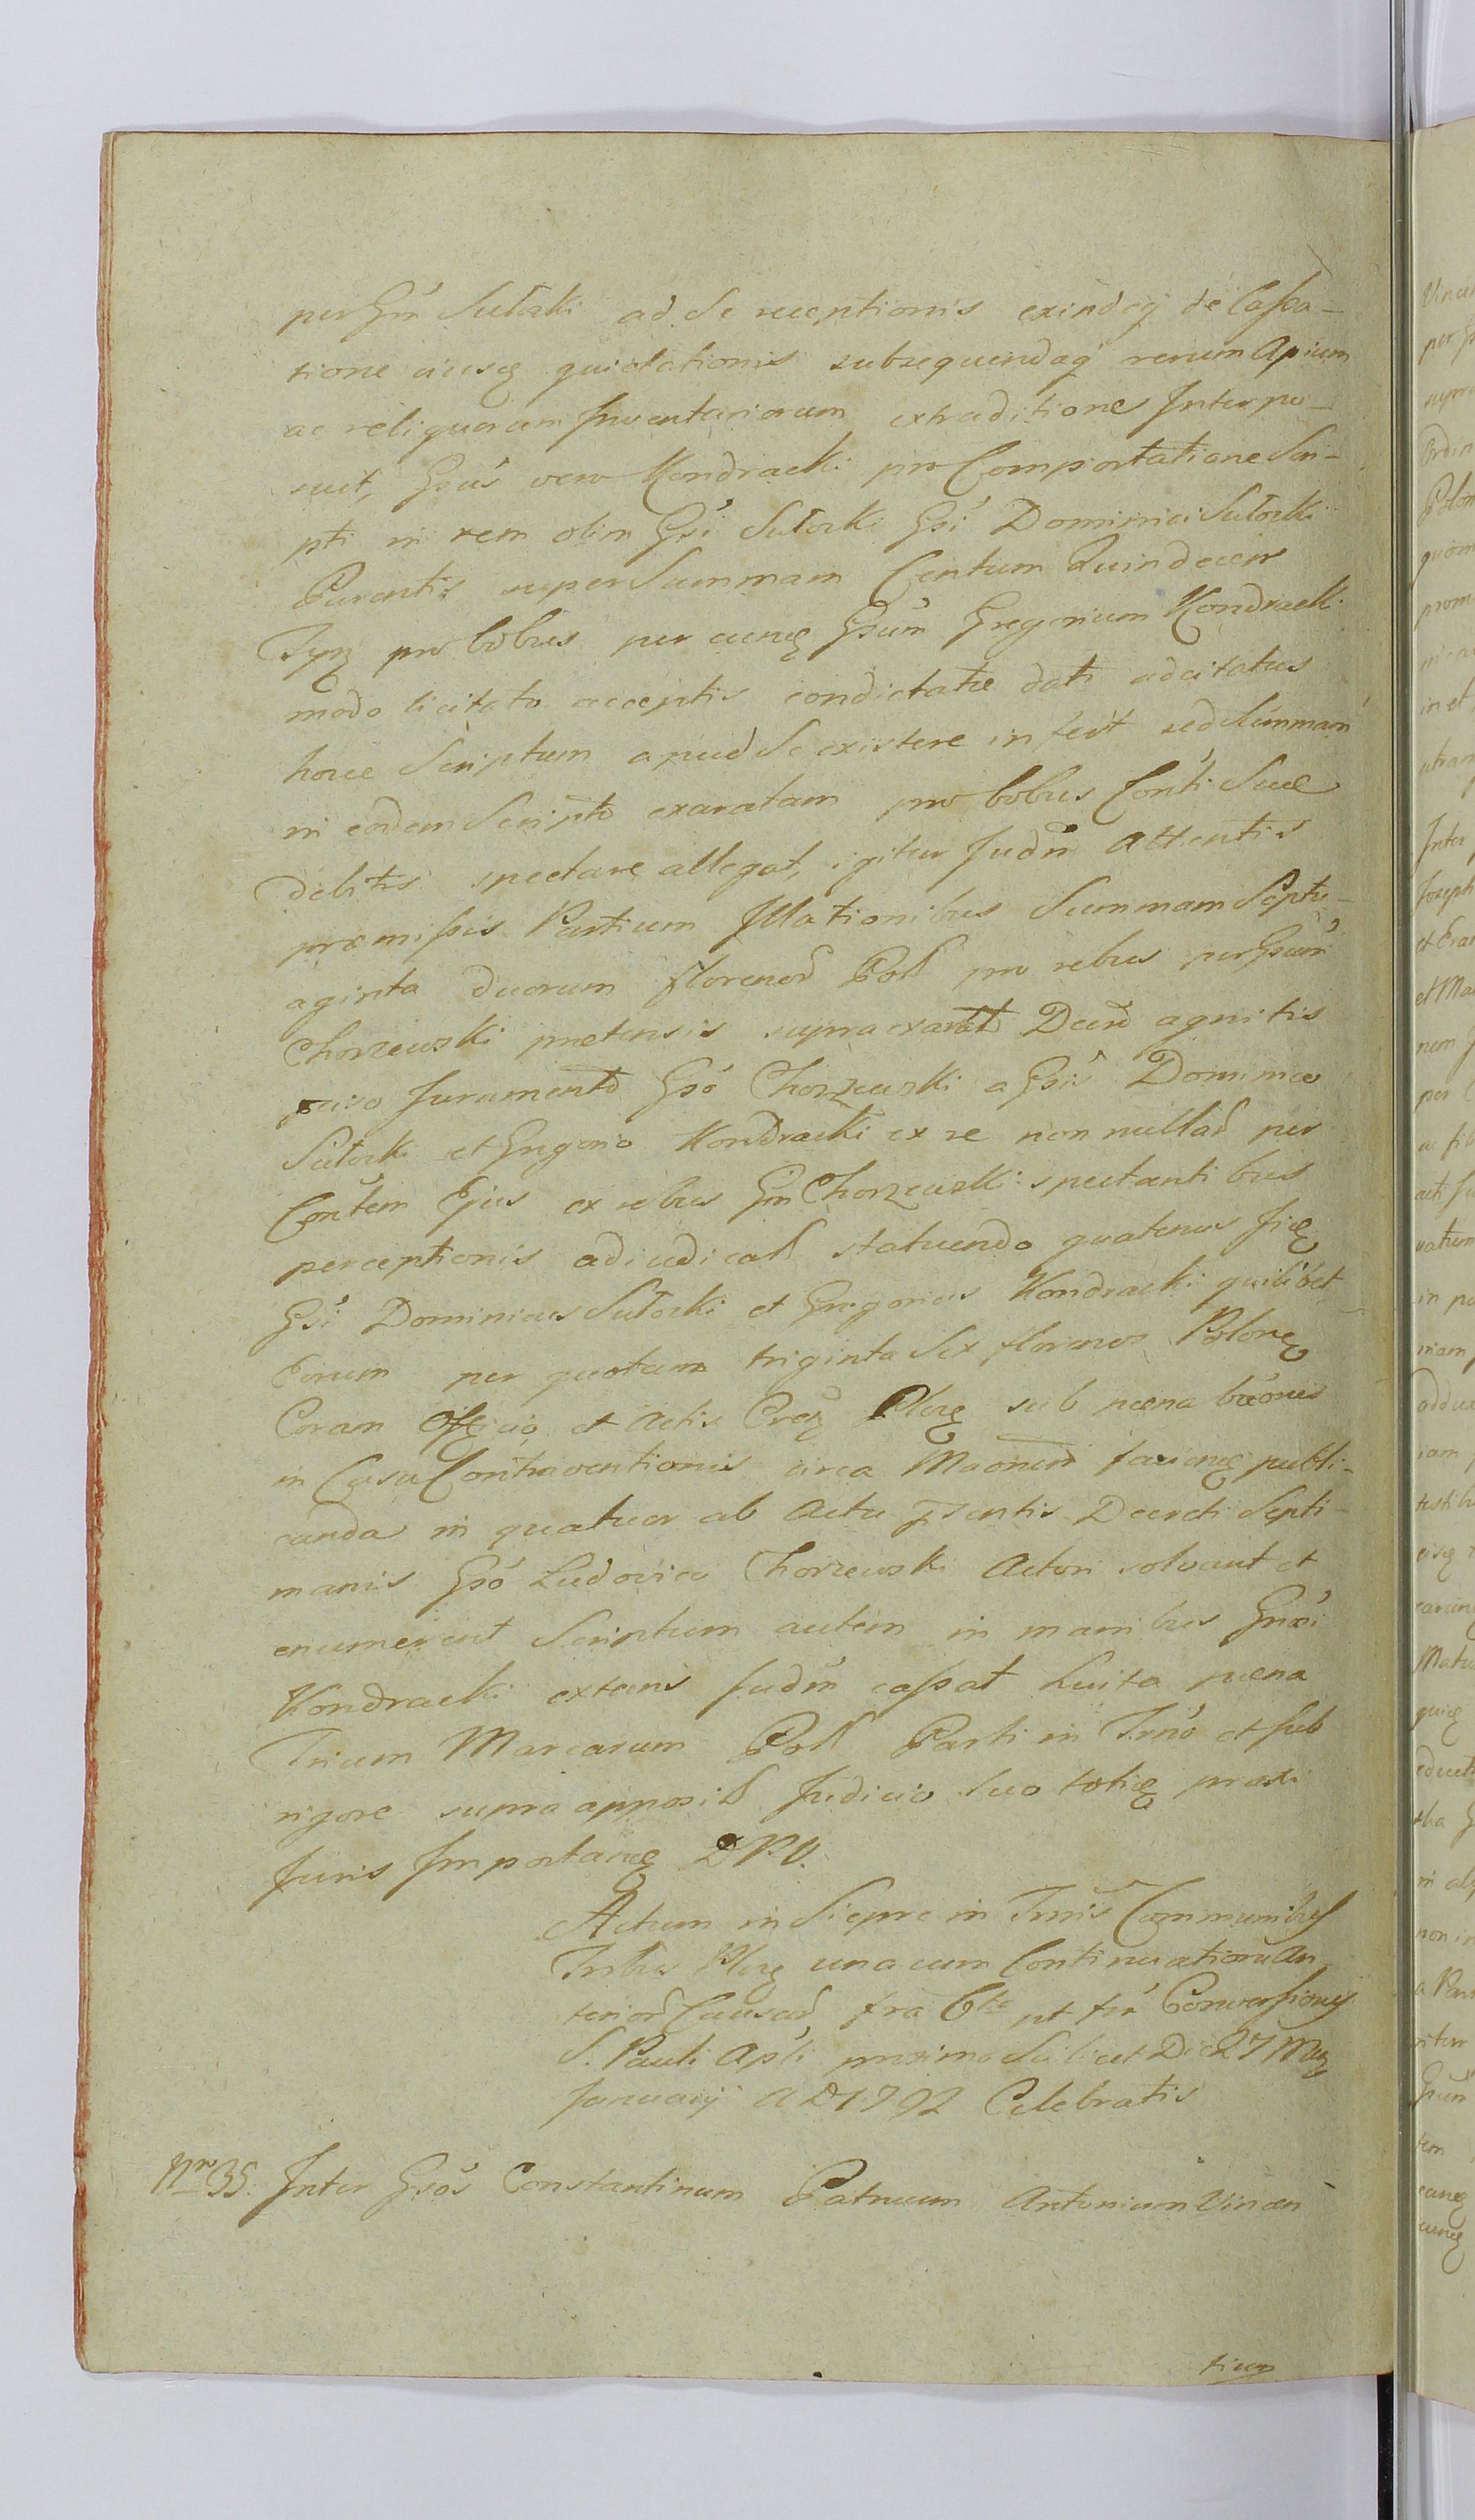 per Gm̃ Sutoski ad Se receptionis exindeq̃ de Cassa-
tione ciusq̃ quietationis subsequendaq̃ rerum Apium
ac reliquaram Inventariorum extraditione Interpo-
suit, Gsus vero Kondracki pro Comportatione Scri-
pti in rem olim Gsi Sutorki Gsi Dominici Sutorki
Parentis super Summam Centum Quindecim
pro bobus per eumq̃ Gsum Gregorium Kondracki
modo licitato acceptis condictatae dati adcitatus
hocce Scriptum apud Se existere in sed Summam
in eodem Scripto exaratam pro bobus Conti Suae
debitis spectare allegat, igitur Judm̃ Attentis
præmissis Partium Illationibus Summam Septu-
aginta duorum florenor̃ Poll pro rebus per Gsum
Chorzewski pretensis supra exarat Decr̃ agnitis
Juramento Gso Chorzewski a Gsis Dominico
Sutorki et Gregorio Kondracki ex re non nullar̃ per
Contem Ejus ex rebus Gm̃ Chorzewski spectantibus
perceptionis adjudicall statuendo quatenus
Gsi Dominicus Sutorki et Gregorius Kondracki quilibet
Eorum per quotam triginta Sex florenos Polonq̃
Coram Officio et Actis Plocq̃ sub poena bãonis
in Casu Contraventionis circa publi-
canda in quatuor ab Actu psentis Decreti Septi-
manis Gso Ludovico Chorzewski Actori solvant et
enumerent Scriptum autem in manibus Gnosi
Kondracki extans Judm̃ cassat Luita poena
Trium Marcarum Poll Parti in Tmo et sub
rigore supra apposil Judicio suo totiq̃
Juris Importareq̃ D P U.
Actum in Sierpc in Trmis Communibus
Tribus Plocq̃ una cum Continuatione An-
terior Causar̃ fra 6ta pt fm Conversionis
S. Pauli Apli proximo Scilicet Die 27 Msq̃
January A D 1792 Celebratis
Nro 35. Inter Gsos Constantinum Patruum Antonium Vincen
tium